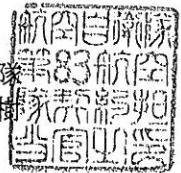 航空自衛隊
第83航空
隊契約担
当官之印
隊
樹